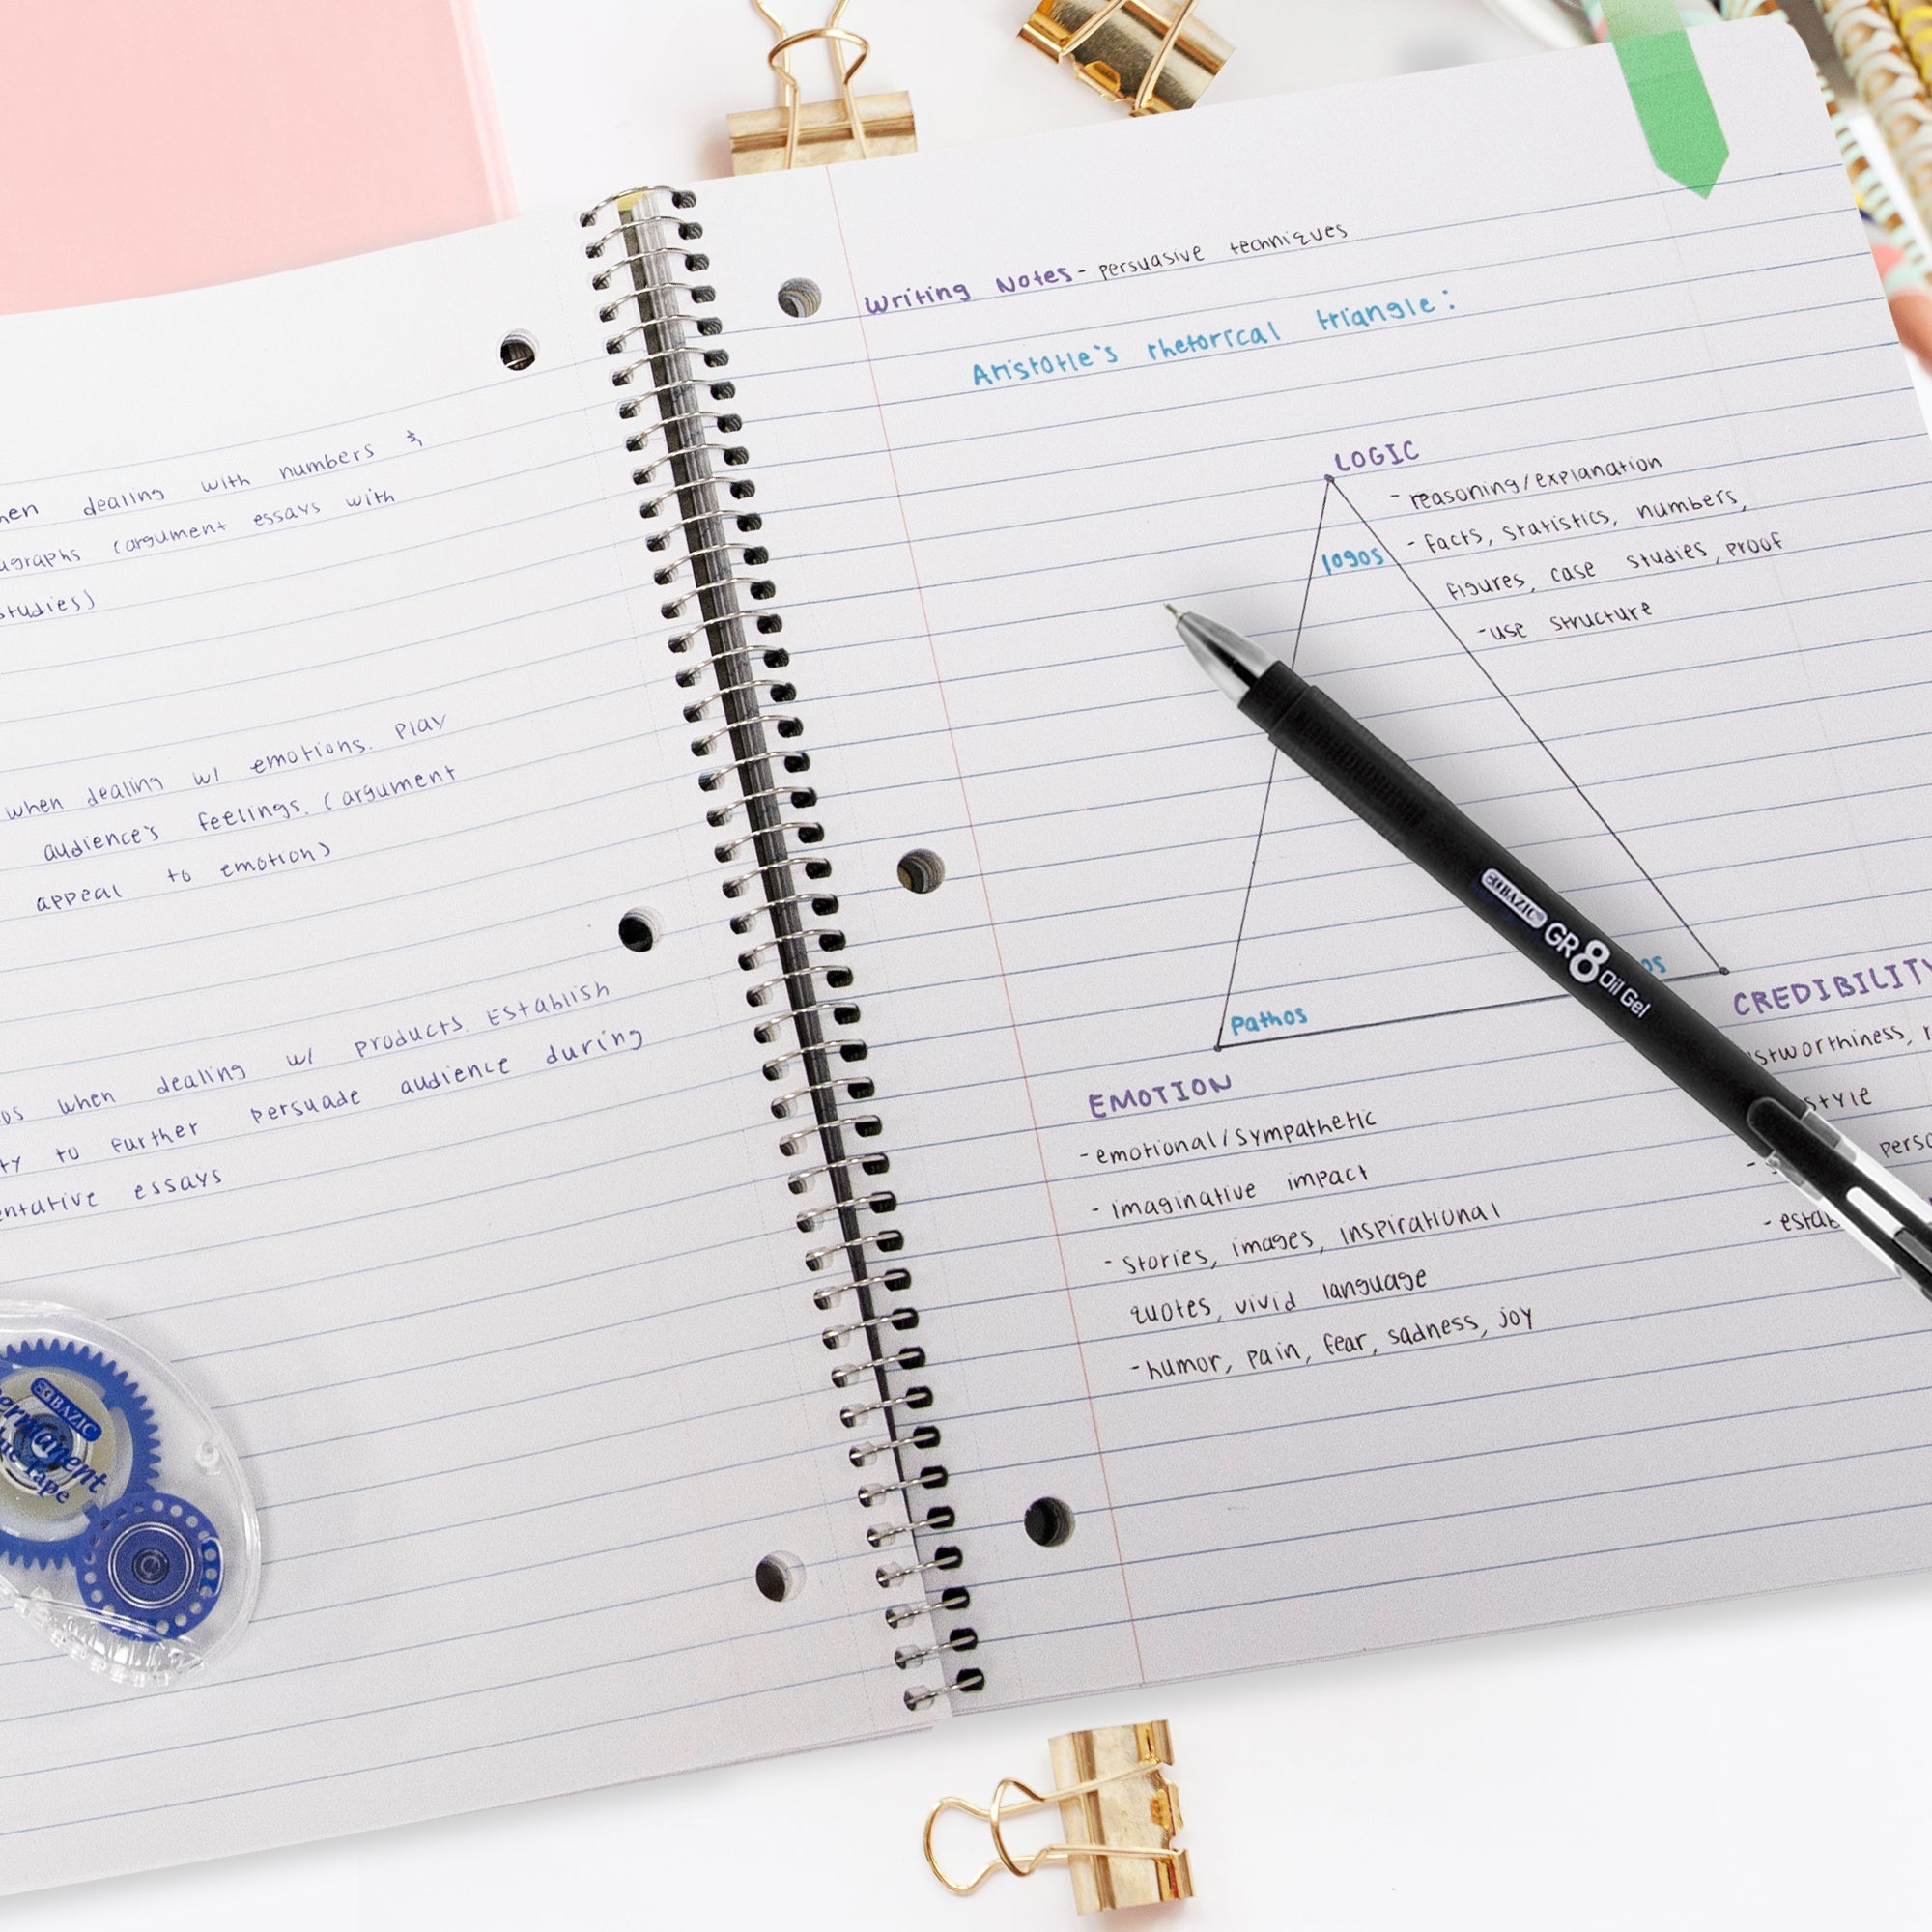 dealing with numbers &
(argument essays with
when dealing w/ emotions. Play
audience's feelings. (argument
appeal to emotion)
when dealing w/ products. Establish
to further persuade audience during
essays
BAZIC
Writing Notes - persuasive techniques
Aristotle's rhetorical triangle:
LOGIC
- reasoning/explanation
- facts, statistics, numbers,
figures, case studies, proof
- use structure
logos
Pathos
EMOTION
- emotional/sympathetic
- imaginative impact
- stories, images, inspirational
quotes, vivid language
- humor, pain, fear, sadness, joy
CREDIBILITY
style
BAZIC GR8 Oil Gel